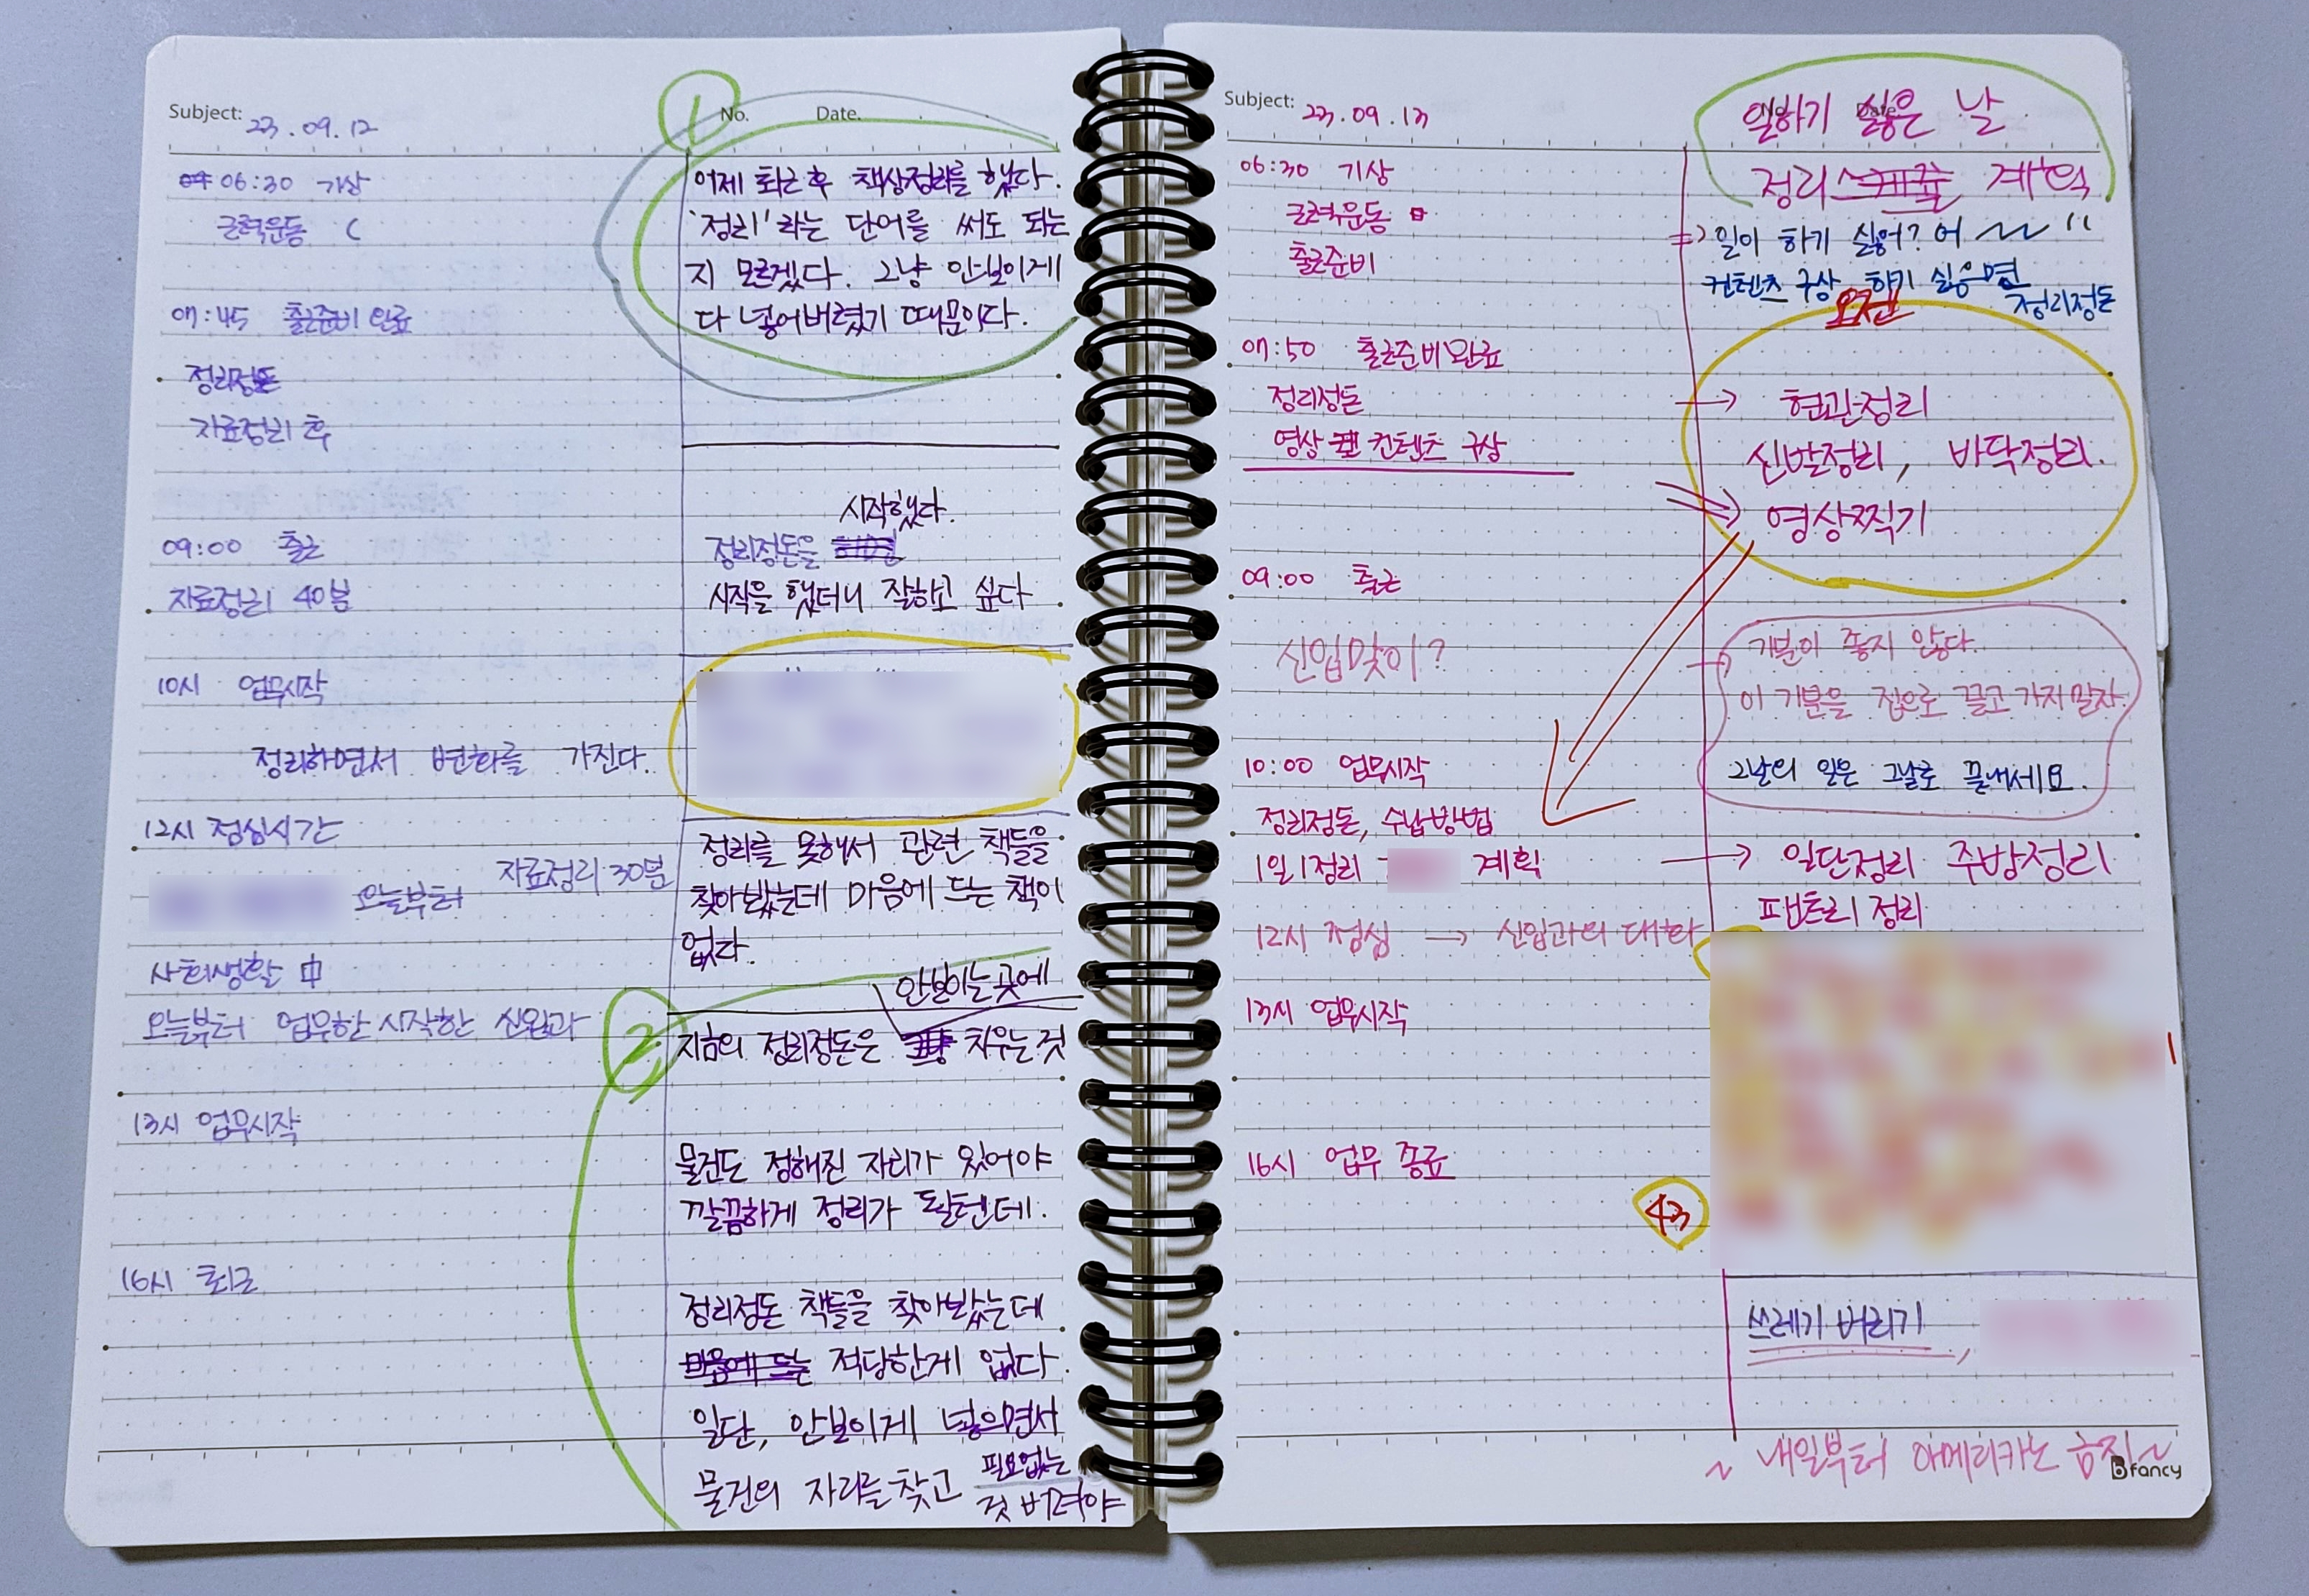 Subject: 23.09.12
06:30 기상
근력운동
07:45 출근준비 완료
정리정돈
자료정리 후
09:00 출근
자료정리 40분
10시 업무시작
정리하면서 변화를 가진다.
12시 점심시간
자료정리 30분
오늘부터
사회생활 中
오늘부터 업무한 시작한 신입과
13시 업무시작
16시 퇴근
① No. Date.
어제 퇴근 후 책상정리를 했다.
'정리'라는 단어를 써도 되는
지 모르겠다. 그냥 안보이게
다 넣어버렸기 때문이다.
시작했다.
정리정돈을
시작을 했더니 잘하고 싶다
정리를 못해서 관련 책들을
찾아봤는데 마음에 드는 책이
없다.
안보이는 곳에
② 지금의 정리정돈은 치우는 것
물건도 정해진 자리가 있어야
깔끔하게 정리가 될텐데.
정리정돈 책들을 찾아봤는데
마음에 드는 적당한게 없다.
일단, 안보이게 넣으면서
물건의 자리를 찾고 필요없는
것 버려야
Subject: 23.09.13
06:30 기상
근력운동
출근준비
07:50 출근준비완료
정리정돈
영상 컨텐츠 구상
09:00 출근
신입맞이?
10:00 업무시작
정리정돈, 수납방법
1일1정리 계획
12시 점심 → 신입과의 대화
13시 업무시작
16시 업무 종료
No. Date.
일하기 싫은 날
정리 스케줄 계획
⇒ 일이 하기 싫어? 어 "
컨텐츠 구상 하기 싫으면
정리정돈
오전
→ 현관정리
신발정리, 바닥정리.
영상찍기
기분이 좋지 않다.
이 기분을 집으로 끌고 가지 말자.
그날의 일은 그날로 끝내세요.
→ 일단정리 주방정리
팬트리 정리
43
쓰레기 버리기,
~ 내일부터 아메리카노 금지~
bfancy